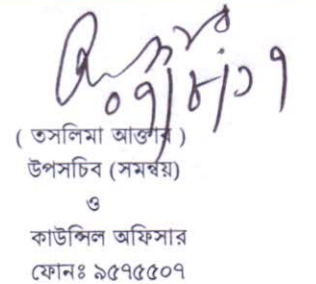 ০৭/৮/১৭
( তসলিমা আক্তার )
উপসচিব (সমন্বয়)
ও
কাউন্সিল অফিসার
ফোনঃ ৯৫৭৫৫০৭